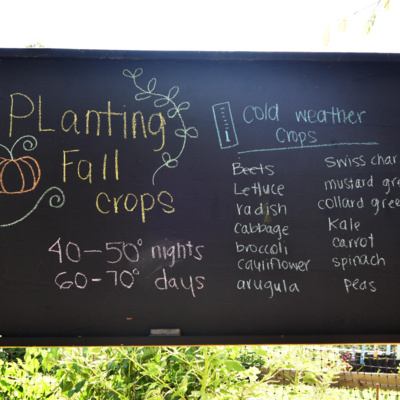 PLanting
Fall
crops
40-50° nights
60-70° days
Cold weather
Crops
Beets
Lettuce
radish
cabbage
broccoli
cauliflower
arugula
Swiss char
mustard gre
collard gree
Kale
carrot
spinach
peas